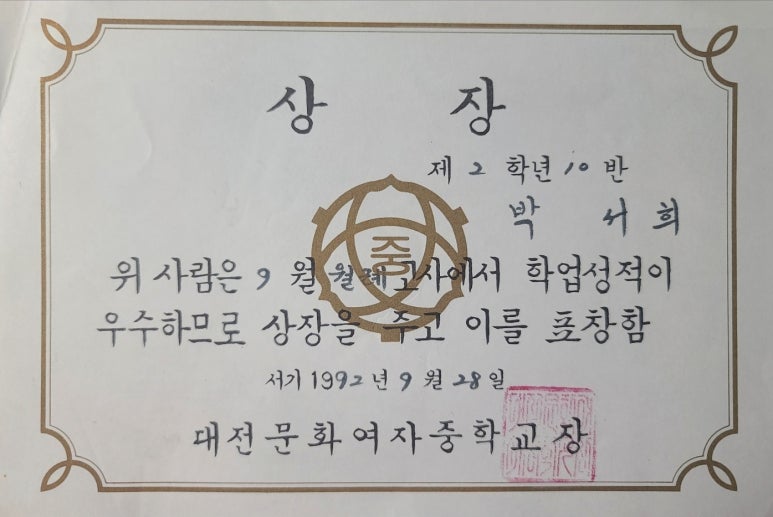 상 장
제 2 학년 10 반
박 서 희
중
위 사람은 9 월 월례고사에서 학업성적이
우수하므로 상장을 주고 이를 표창함
서기 1992년 9 월 28일
대전문화여자중학교장